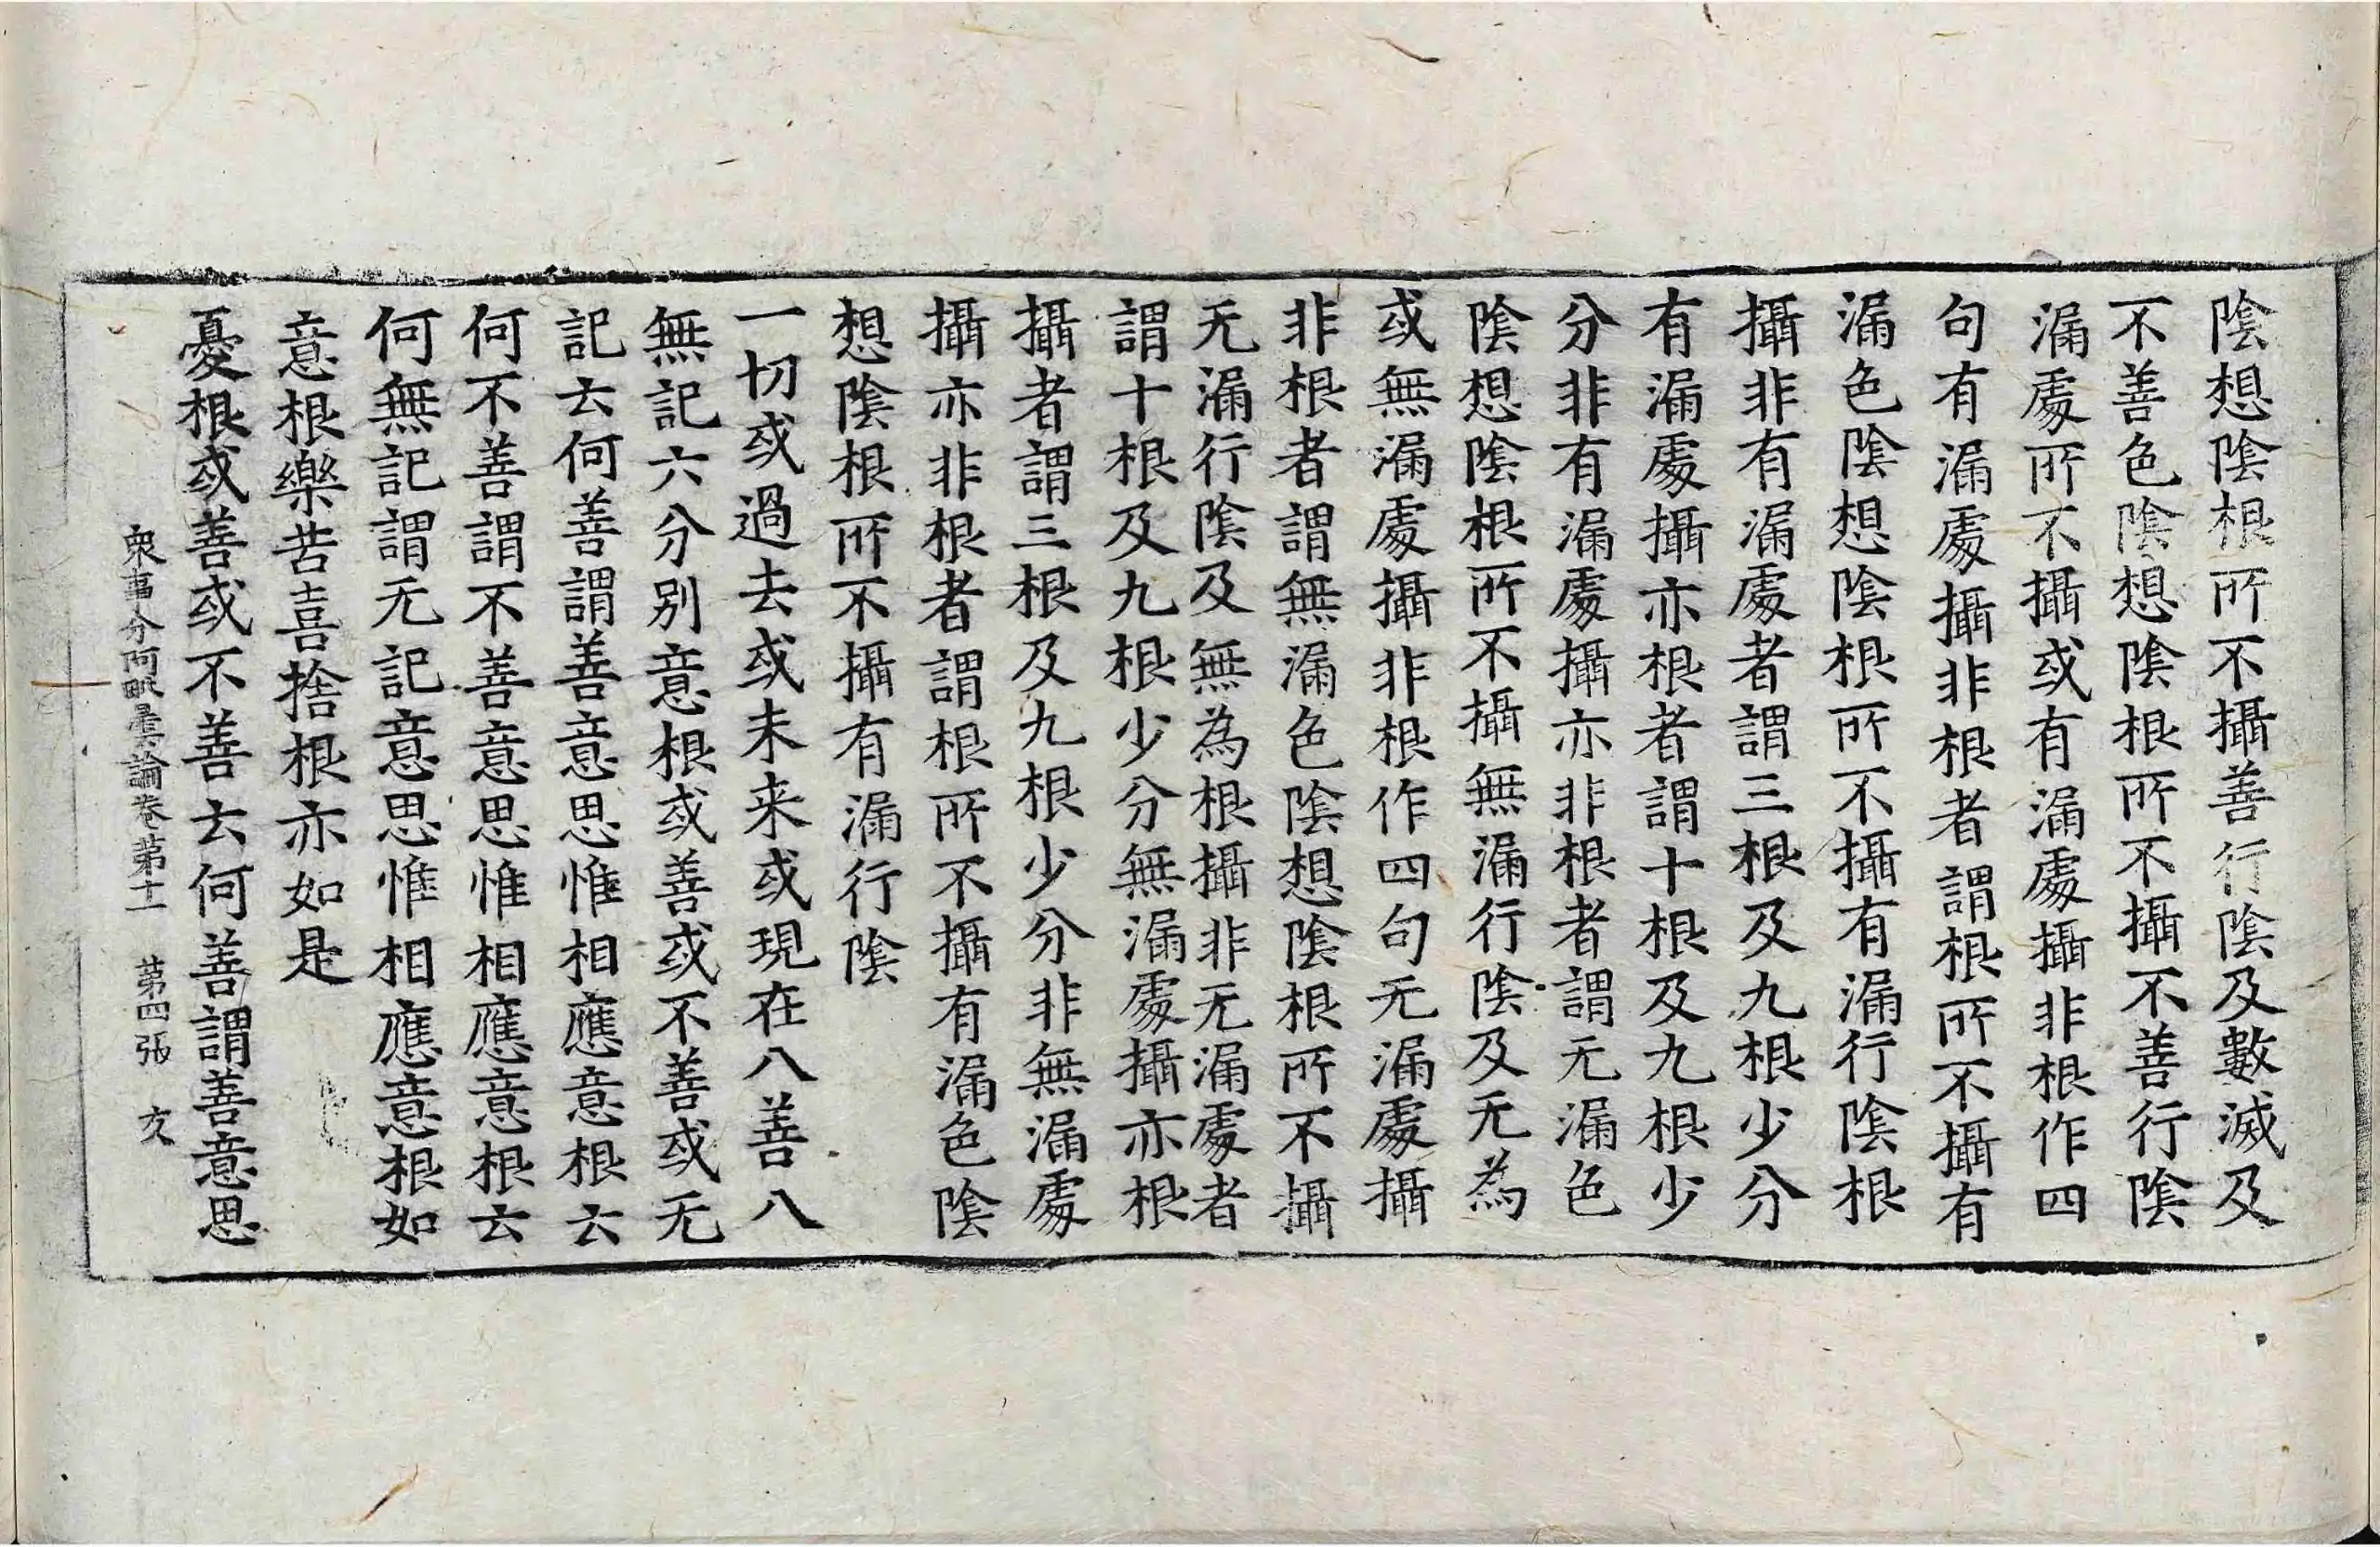 陰想陰根所不攝善行陰及數滅及
不善色陰想陰根所不攝不善行陰
漏處所不攝或有漏處攝非根作四
句有漏處攝非根者謂根所不攝有
漏色陰想陰根所不攝有漏行陰根
攝非有漏處者謂三根及九根少分
有漏處攝亦根者謂十根及九根少
分非有漏處攝亦非根者謂无漏色
陰想陰根所不攝無漏行陰及无為
或無漏處攝非根作四句无漏處攝
非根者謂無漏色陰想陰根所不攝
无漏行陰及無為根攝非无漏處者
謂十根及九根少分無漏處攝亦根
攝者謂三根及九根少分非無漏處
攝亦非根者謂根所不攝有漏色陰
想陰根所不攝有漏行陰
一切或過去或未来或現在八善八
無記六分別意根或善或不善或无
記云何善謂善意思惟相應意根云
何不善謂不善意思惟相應意根云
何無記謂无記意思惟相應意根如
意根樂苦喜捨根亦如是
憂根或善或不善云何善謂善意思
衆事分阿毗曇論卷第十一 第四張 友